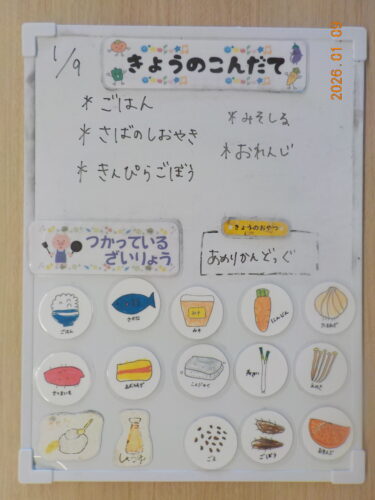 2026.01.09
1/9
きょうのこんだて
*ごはん
*みそしる
*さばのしおやき
*おれんじ
*きんぴらごぼう
つかっている
ざいりょう
きょうのおやつ
あめりかんどっぐ
ごはん
さかな
みそ
にんじん
たまねぎ
さつまいも
あぶらあげ
こんにゃく
ねぎ
えのき
ごま
ごぼう
おれんじ